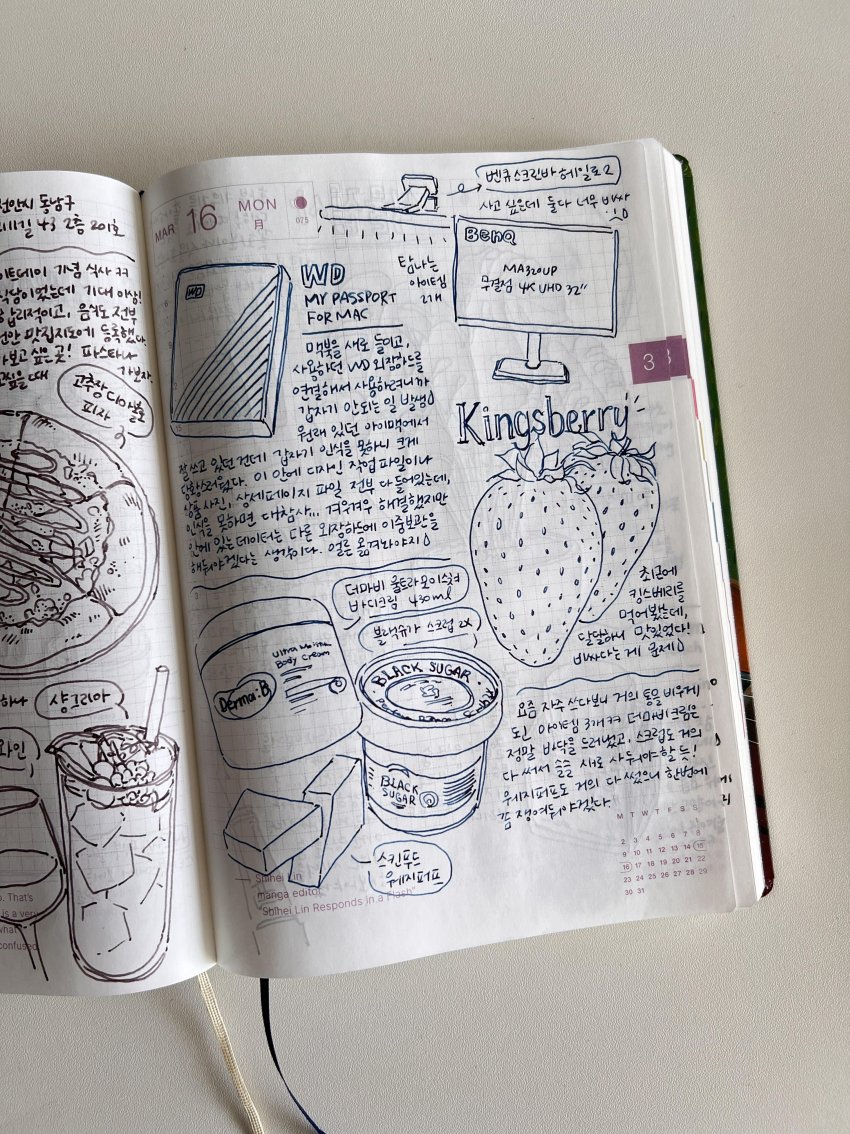 천안시 동남구
43 2층 201호
기념 식사 ㅋㅋ
식당이었는데 기대 이상!
합리적이고, 음식도 전부
천안 맛집지도에 등록했다.
가보고 싶은 곳! 파스타나
때 가보자.
고추장
피자
하나
샹그리아
와인
o. That's
is a very
what
confused
MAR 16 MON
月
075
벤큐 스크린바 헤일로2
사고 싶은데 둘다 너무 비싸
탐나는
아이템
2개
BenQ
MA320UP
무결점 4K UHD 32"
WD
WD
MY PASSPORT
FOR MAC
맥북을 새로 들이고,
사용하던 WD 외장하드를
연결해서 사용하려니까
갑자기 안되는 일 발생
원래 있던 아이맥에서
잘 쓰고 있던 건데 갑자기 인식을 못하니 크게
당황스러웠다. 이 안에 디자인 작업 파일이나
상품 사진, 상세페이지 파일 전부 다 들어있는데,
인식을 못하면 대참사... 겨우겨우 해결했지만
안에 있는 데이터는 다른 외장하드에 이중보관을
해둬야겠다는 생각이다. 얼른 옮겨놔야지
3
Kingsberry
최근에
킹스베리를
먹어봤는데,
달달하니 맛있었다!
비싸다는 게 문제
더마비 울트라모이스쳐
바디크림 430ml
블랙슈가 스크럽 2X
Ultra Moisture
Body Cream
Derma:B
BLACK SUGAR
BLACK
SUGAR
스킨푸드
웨지퍼프
요즘 자주 쓰다보니 거의 통을 비우게
된 아이템 3개 ㅋㅋ 더마비 크림은
정말 바닥을 드러냈고, 스크럽도 거의
다 써서 슬슬 새로 사둬야할 듯!
웨지퍼프도 거의 다 썼으니 한번에
쟁여둬야겠다.
Shihei Lin
manga editor
"Shihei Lin Responds in a Flash"
M T W T F S S
2 3 4 5 6 7 8
9 10 11 12 13 14 15
16 17 18 19 20 21 22
23 24 25 26 27 28 29
30 31